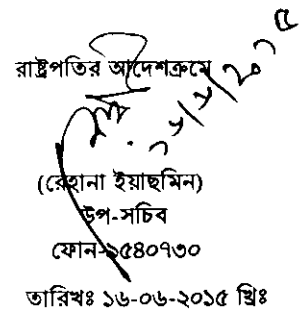 রাষ্ট্রপতির আদেশক্রমে
(রেহানা ইয়াছমিন)
উপ-সচিব
ফোন-৯৫৪০৭৩০
তারিখঃ ১৬-০৬-২০১৫ খ্রিঃ